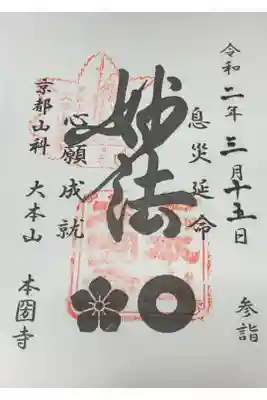 令和二年三月十五日
参詣
息災延命
妙法
心願成就
京都山科
大本山 本圀寺